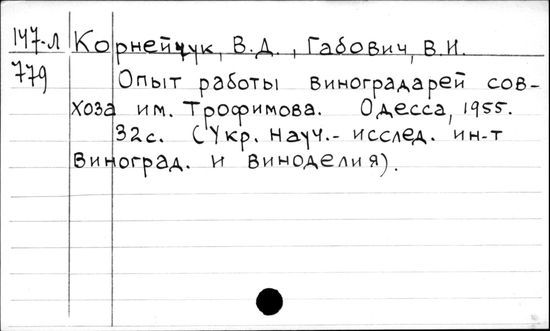 147-л Корнейчук, В.Д., Габович, В.И.
779 Опыт работы виноградарей сов-
хоза им. Трофимова. Одесса, 1955.
32с. (Укр. науч.- исслед. ин-т
виноград. и виноделия).